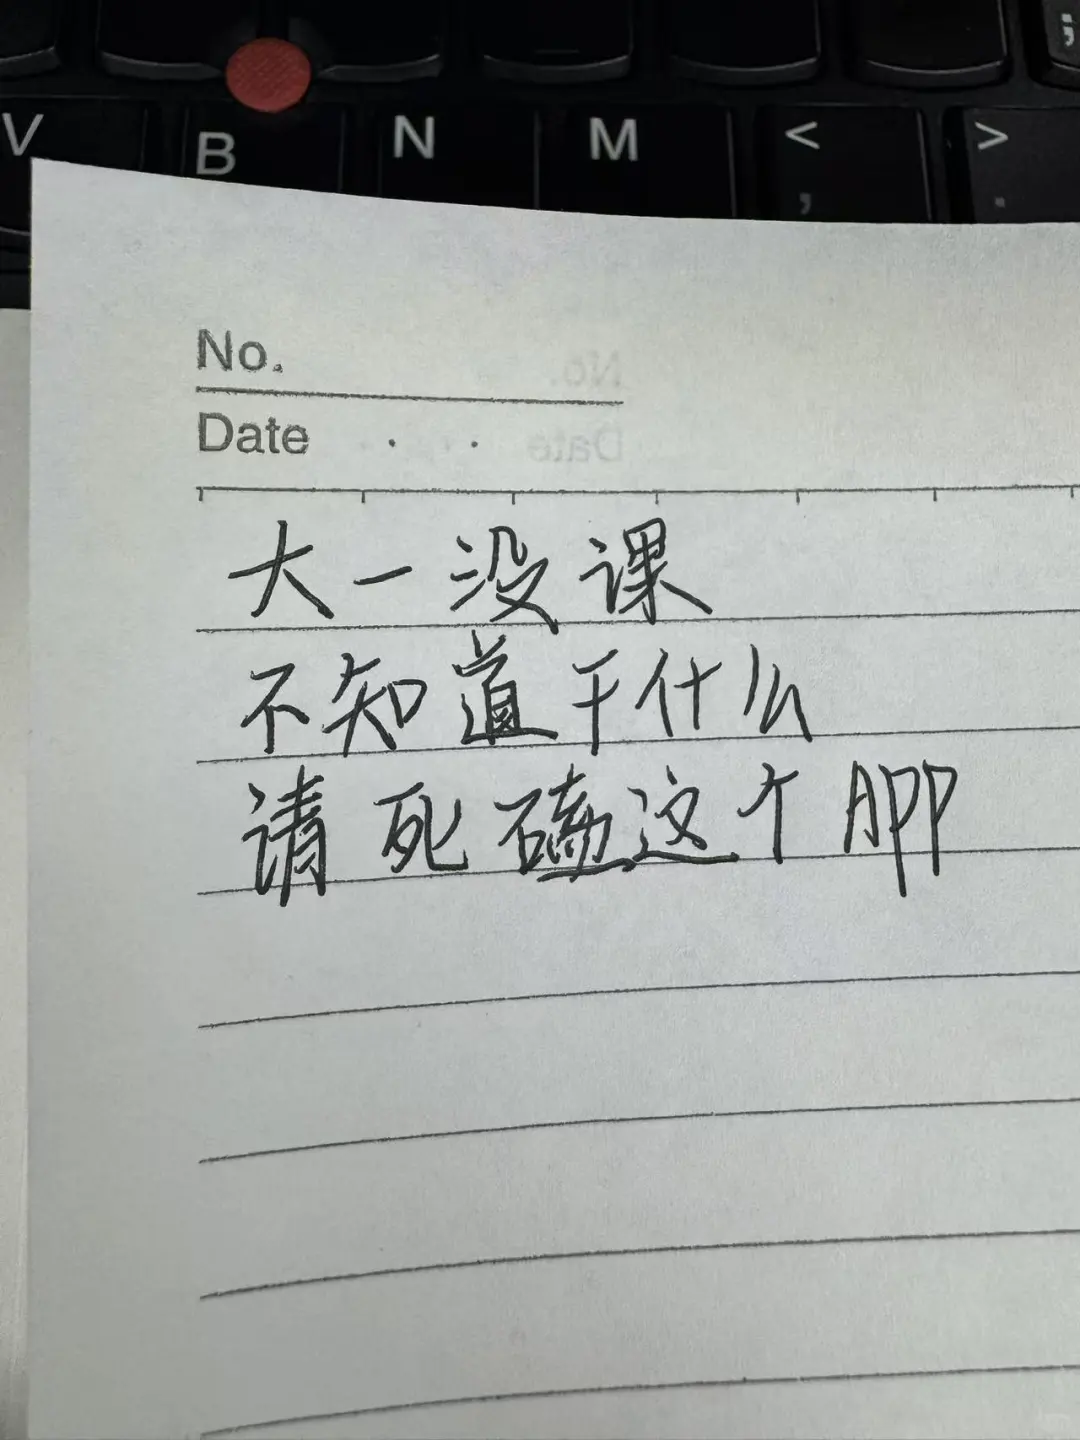 V B N M < , > . ;
No.
Date . .
大一没课
不知道干什么
请死磕这个APP